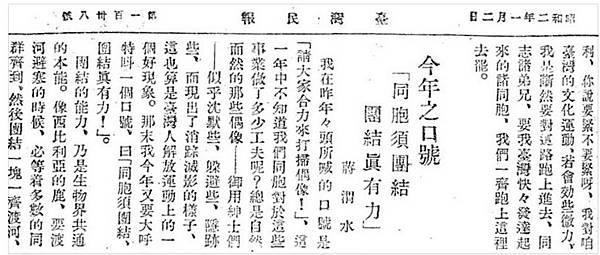 昭和二年一月二日
臺灣民報
第一百卅八號
利、你說要緊不要緊呀、我對咱
臺灣的文化運動、若會効些微力、
我是斷然要對這路跑上進去、同
志諸弟兄、要我臺灣快々發達起
來的諸同胞、我們一齊跑上這裡
去罷。
今年之口號
「同胞須團結
團結眞有力」
蔣渭水
我在昨年々頭所喊的口號是
「請大家合力來打掃偶像！」、這
一年中不知道我們同胞對於這些
事業做了多少工夫呢？總是自然
而然的那些偶像──御用紳士們
──似乎沈默些、躱避些、隱跡
些、而現出了消蹤滅影的樣子、
這也算是臺灣人解放運動上的一
個好現象。那末我今年又要大呼
特呌一個口號、曰「同胞須團結、
團結眞有力！」。
團結的能力、乃是生物界共通
的本能。像西比利亞的鹿、要渡
河避寒的時候、必等着多數的同
群齊到、然後團結一塊一齊渡河、